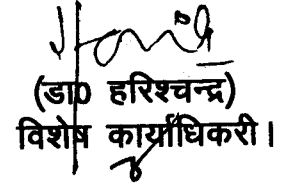 (डा0 हरिश्चन्द्र)
विशेष कार्याधिकरी।